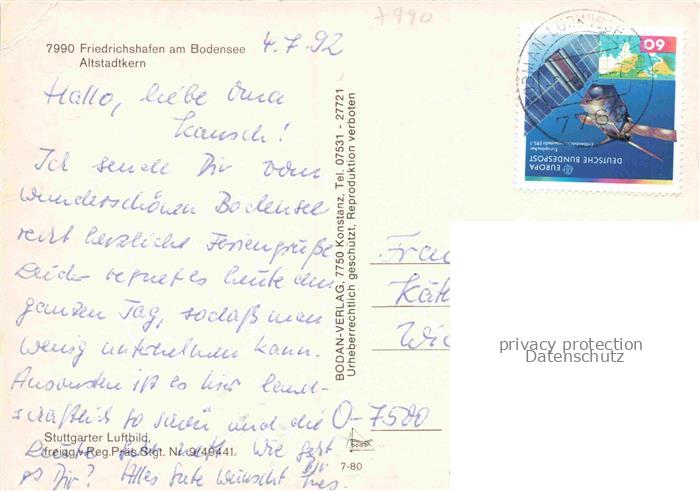 7990
7990 Friedrichshafen am Bodensee
Altstadtkern
4.7.92
Hallo, liebe Oma
Kausch!
Ich sende Dir vom
wunderschönen Bodensee
recht herzliche Feriengrüße
Leider regnet es heute den
ganzen Tag, sodaß man
wenig unternehmen kann.
Ansonsten ist es hier land-
schaftlich so schön und die
Leute sehr nett. Wie geht
es Dir? Alles Gute wünscht Dir
Ines.
Stuttgarter Luftbild,
freigg.v.Reg.Präs.Stgt. Nr. 9/49441
BODAN-VERLAG, 7750 Konstanz, Tel. 07531 - 27721
Urheberrechtlich geschützt, Reproduktion verboten
bodan
7-80
60
DEUTSCHE BUNDESPOST
EUROPA
Europäischer
Frau
Kät
Wic
O-7500
privacy protection
Datenschutz